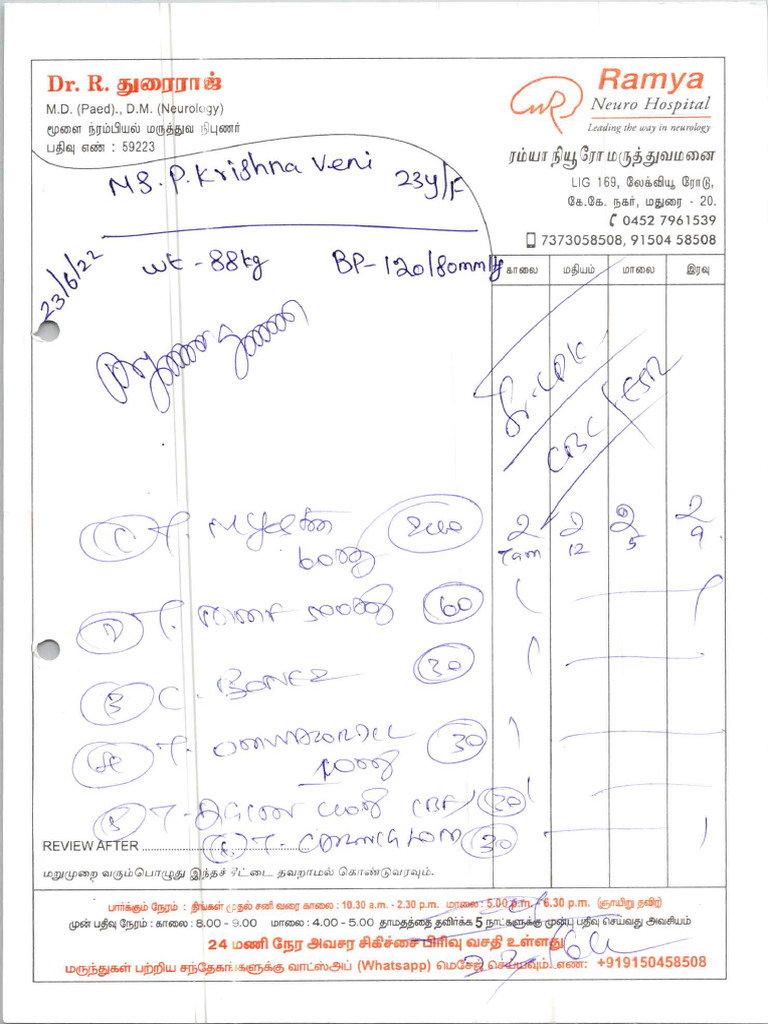 Dr. R. துரைராஜ்
M.D. (Paed)., D.M. (Neurology)
மூளை நரம்பியல் மருத்துவ நிபுணர்
பதிவு எண் : 59223
Ramya
Neuro Hospital
Leading the way in neurology
ரம்யா நியூரோ மருத்துவமனை
LIG 169, லேக்வியூ ரோடு,
கே.கே. நகர், மதுரை - 20.
0452 7961539
7373058508, 91504 58508
MS. P. Krishna Veni 23y/F
23/6/22
wt - 88kg BP - 120/80mm
காலை மதியம் மாலை இரவு
CBC / ESR
① T. 60mg 200 2 2 2 2
7am 12 5 9
② T. 500mg 60
③ C. 30
④ T. 30
⑤ T. 20
REVIEW AFTER
⑥ T. 30
மறுமுறை வரும்பொழுது இந்தச் சீட்டை தவறாமல் கொண்டுவரவும்.
பார்க்கும் நேரம் : திங்கள் முதல் சனி வரை காலை : 10.30 a.m. - 2.30 p.m. மாலை : 5.00 p.m. - 6.30 p.m. (ஞாயிறு தவிர)
முன் பதிவு நேரம் : காலை : 8.00 - 9.00 மாலை : 4.00 - 5.00 தாமதத்தை தவிர்க்க 5 நாட்களுக்கு முன்பு பதிவு செய்வது அவசியம்
24 மணி நேர அவசர சிகிச்சை பிரிவு வசதி உள்ளது
மருந்துகள் பற்றிய சந்தேகங்களுக்கு வாட்ஸ்அப் (Whatsapp) மெசேஜ் செய்யவும். எண்: +919150458508